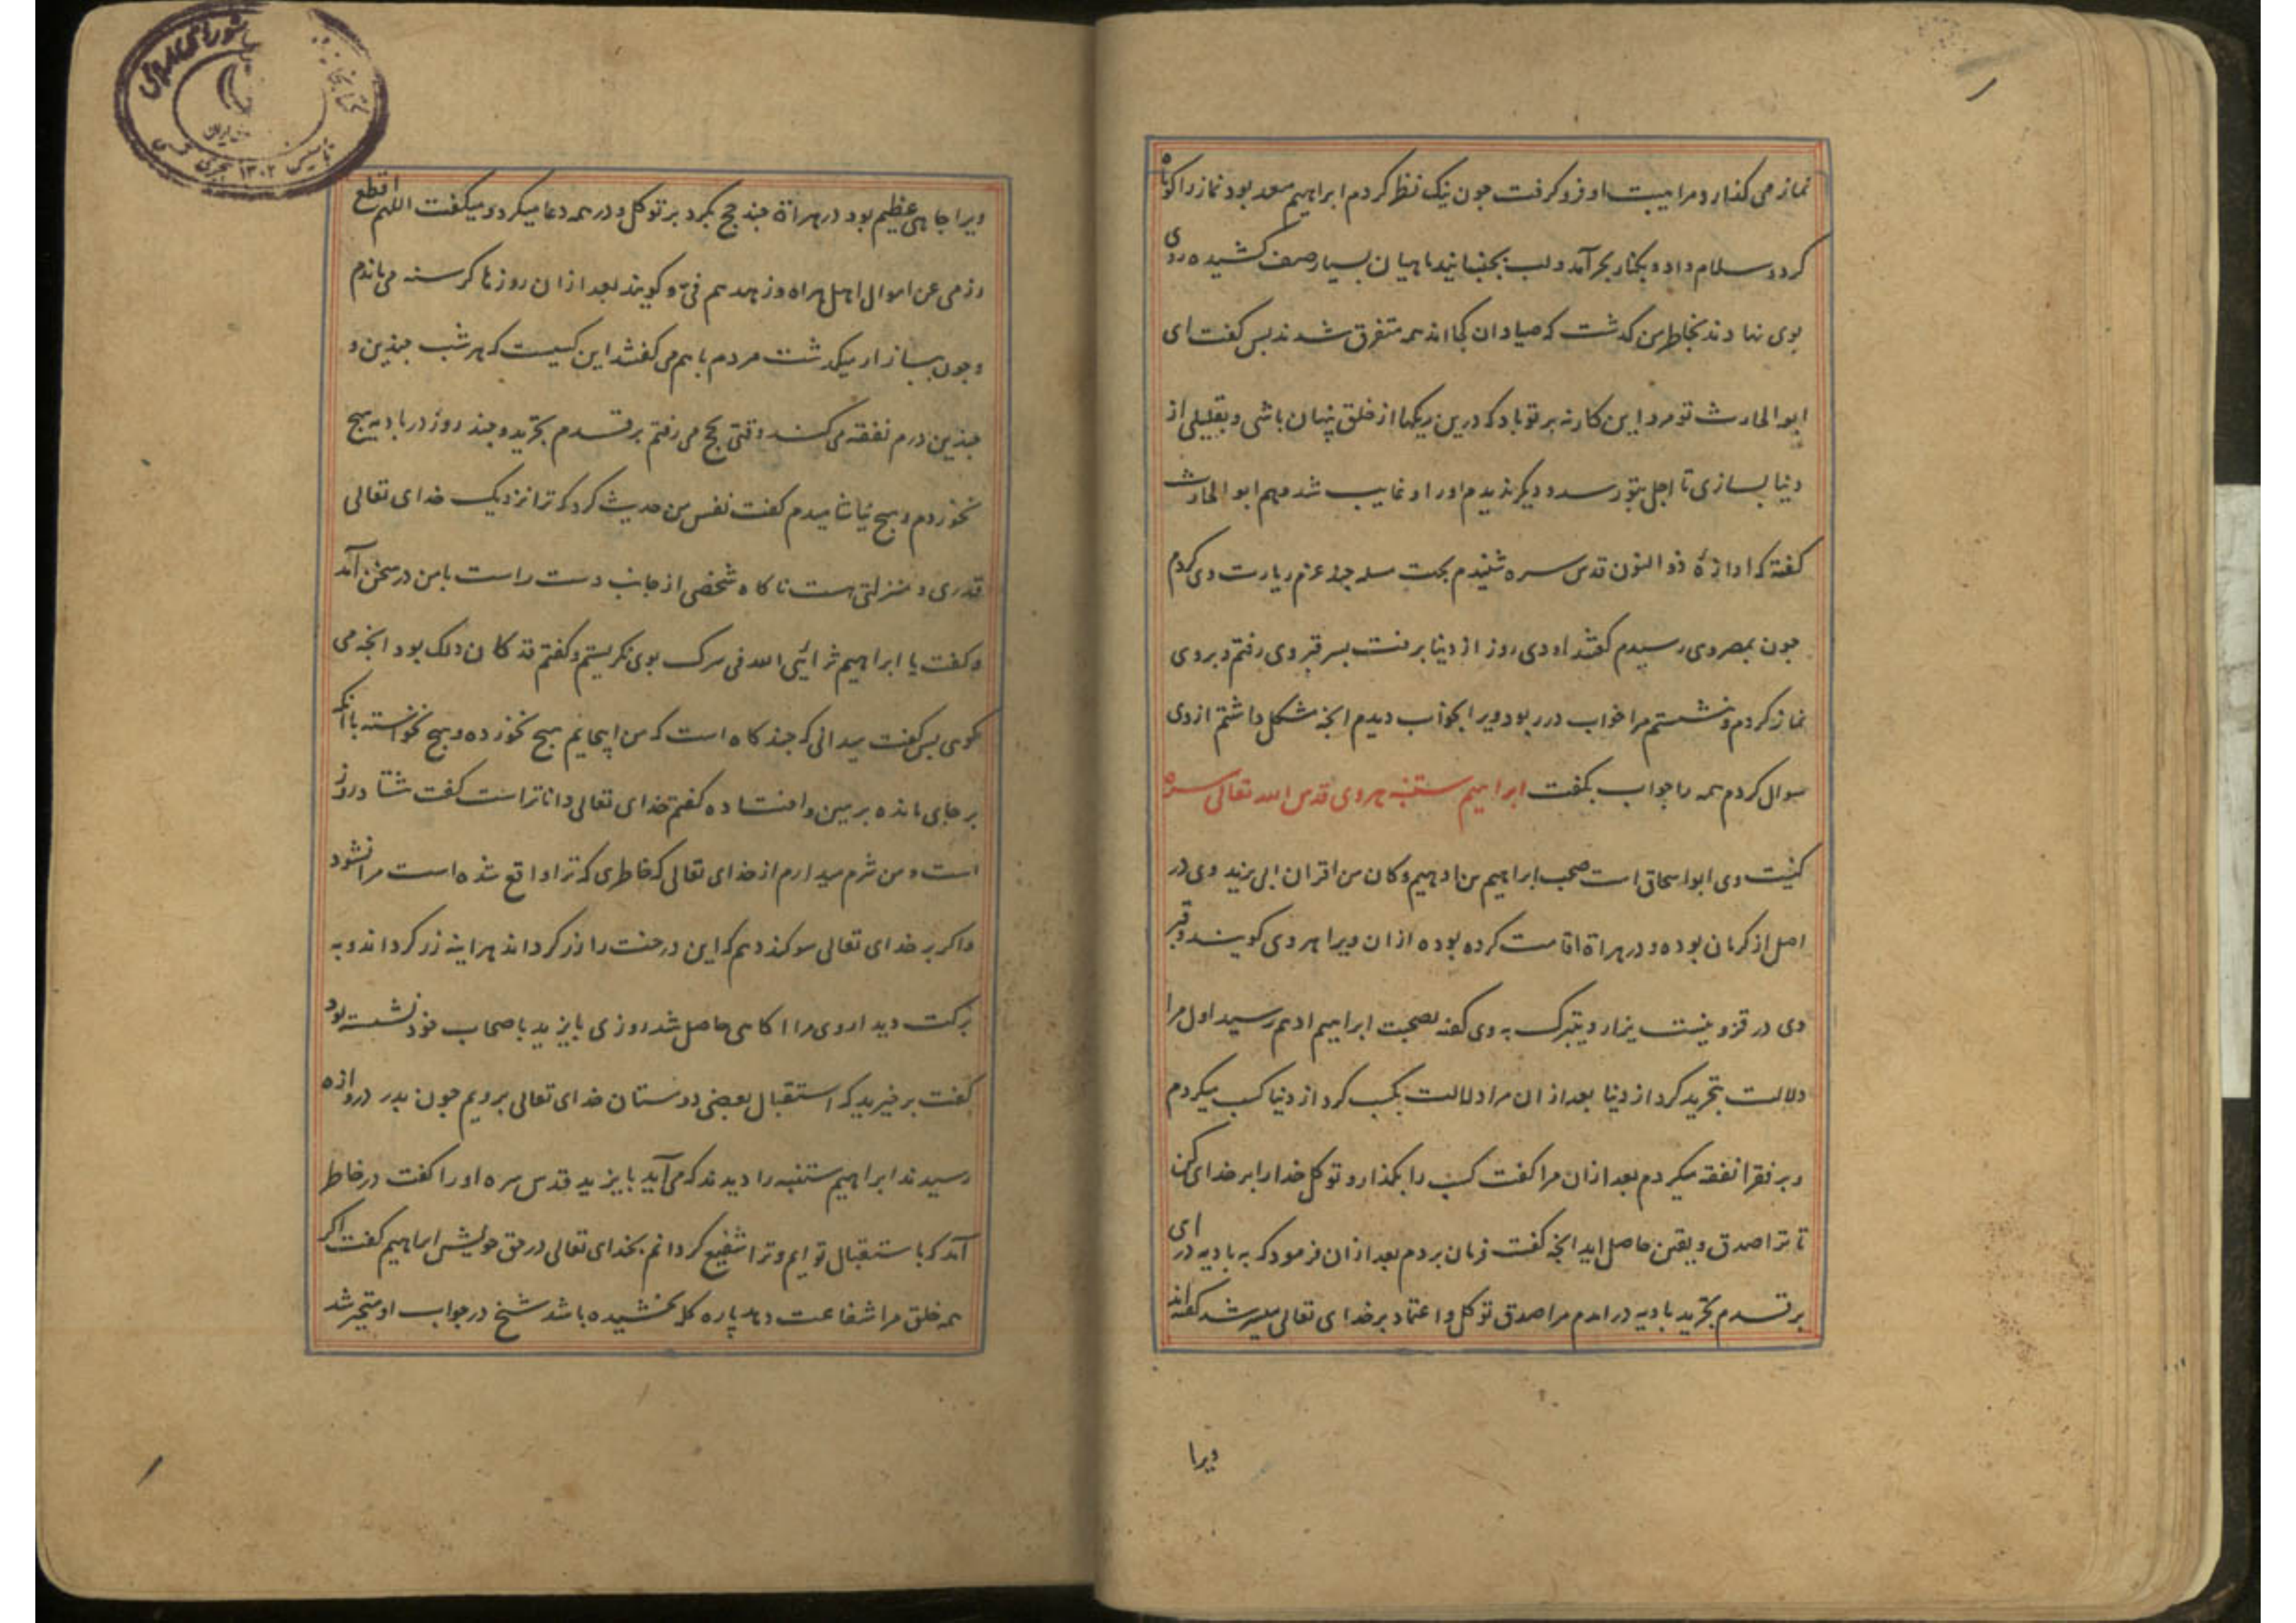 نماز می گذارد و مرا هیبت او فرو گرفت چون نیک نظر کردم ابراهیم سعد بود نماز را کوتاه
کرد و سلام داد و بکنار بحر آمد و لب بجنبانید ماهیان بسیار صف کشیده روی
بوی نهادند بخاطر من گذشت که صیادان کجا اند همه متفرق شدند پس گفت ای
ابو الحارث تو مرد این کار نه بر تو باد که درین ریکها از خلق پنهان باشی و بقلیلی از
دنیا بسازی تا اجل بتو رسد و دیگر ندیدم او را و غایب شد و هم ابو الحارث
گفته که اوازهٔ ذو النون قدس سره شنیدم بجهت مسله چند عزم زیارت وی کردم
چون بمصر وی رسیدم گفتند او دی روز از دنیا برفت بسر قبر وی رفتم و بر وی
نماز کردم و نشستم مرا خواب در ربود ویرا بخواب دیدم انچه مشکل داشتم از وی
سوال کردم همه را جواب بگفت ابراهیم ستنبه هروی قدس الله تعالی سره
کنیت وی ابو اسحاق است صحب ابراهیم بن ادهیم و کان من اقران ابی یزید وی در
اصل از کرمان بوده و در هراة اقامت کرده بوده ازان ویرا هروی گویند و قبر
وی در قزوینست یزار و یتبرک به وی گفته بصحبت ابراهیم ادهم رسید اول مرا
دلالت بتجرید کرد از دنیا بعد ازان مرا دلالت بکسب کرد از دنیا کسب میکردم
و بر فقرا نفقه میکردم بعد ازان مرا گفت کسب را بگذار و توکل خدا را بر خدای کن
تا ترا صدق و یقین حاصل اید انچه گفت فرمان بردم بعد ازان فرمود که به بادیه در ای
بر قدم تجرید بادیه در امدم مرا صدق توکل و اعتماد بر خدای تعالی میسر شد گفته اند
ویرا
ویرا جاهی عظیم بود در هراة چند حج بکرد بر توکل و در همه دعا میکرد و میگفت اللهم اقطع
رزقی عن اموال اهل هراه و زهدهم فیّ و گویند بعد ازان روزها گرسنه می ماندم
و چون ببازار میگذشت مردم با هم می گفتند این کسیست که هر شب چندین و
چندین درم نفقه می کند وقتی بحج می رفتم بر قدم تجرید و چند روز در بادیه هیچ
نخوردم و هیچ نیاشامیدم گفت نفس من حدیث کرد که ترا نزدیک خدای تعالی
قدری و منزلتی هست ناگاه شخصی از جانب دست راست با من در سخن آمد
و گفت یا ابراهیم ترائی الله فی سرک بوی نگریستم و گفتم قد کان ذلک بود انچه می
گوی پس گفت میدانی که چند گاه است که من اینجایم هیچ نخورده و هیچ نخواسته با انکه
بر جای مانده بر مین و افتاده گفتم خدای تعالی داناتراست گفت هشتاد روز
است و من شرم میدارم از خدای تعالی که خاطری که ترا واقع شده است مرا نشود
و اگر بر خدای تعالی سوگند دهم که این درخت را زر گرداند هراینه زر گرداند و به
برکت دیدار وی مرا اکاهی حاصل شد روزی بایزید با صحاب خود نشسته بود
گفت برخیزید که استقبال بعضی دوستان خدای تعالی برویم چون بدر دروازه
رسیدند ابراهیم ستنبه را دیدند که می آید بایزید قدس سره او را گفت در خاطر
آمد که باستقبال تو ایم و ترا شفیع گردانم بخدای تعالی در حق خویش ابراهیم گفت اگر
همه خلق مرا شفاعت دهد پاره گل بخشیده باشد شیخ در جواب او متحیر شد
۱۳۰۲